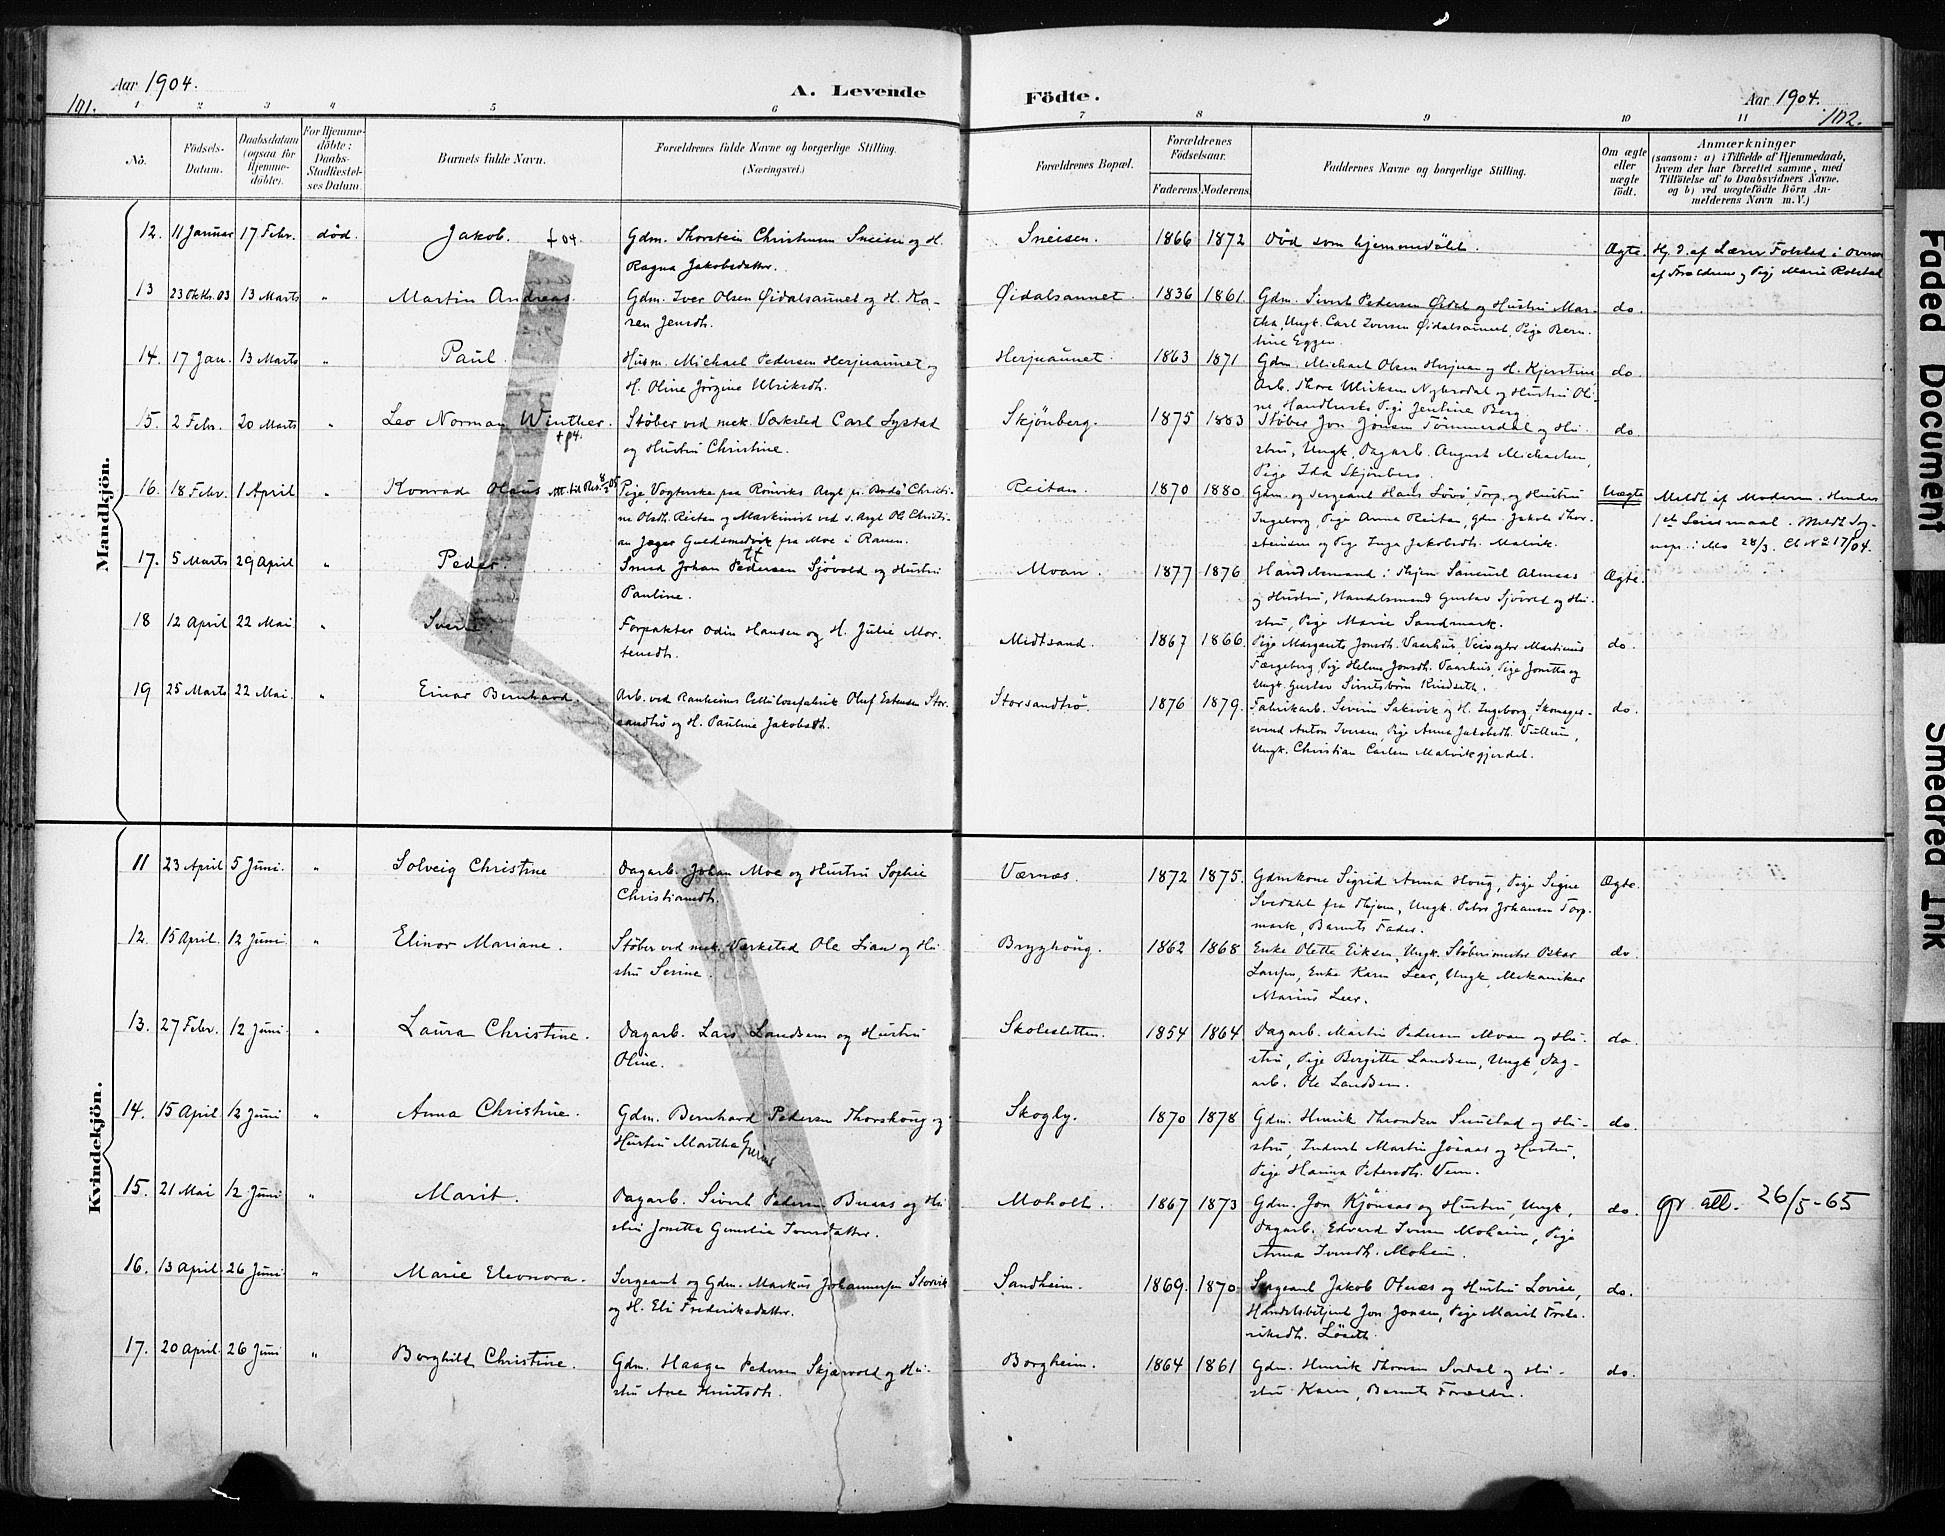 Aar 1904.
101.
A. Levende
Födte.
Aar 1904.
102.
1 2 3 4 5 6 7 8 9 10 11
No.
Födsels-
Datum.
Daabsdatum
(ogsaa for
hjemme-
döbte).
For Hjemme-
döbte:
Daabs-
Stadfæstel-
ses Datum.
Barnets fulde Navn.
Forældrenes fulde Navne og borgerlige Stilling.
(Næringsvei.)
Forældrenes Bopæl.
Forældrenes
Födselsaar.
Faderens. Moderens.
Faddernes Navne og borgerlige Stilling.
Om ægte
eller
uægte
födt.
Anmærkninger
(saasom: a) i Tilfælde af Hjemmedaab,
hvem der har forrettet samme, med
Tilföielse af to Daabsvidners Navne.
og b) ved uægtefödte Börn An-
melderens Navn m. V.)
Mandkjön.
12. 11 Januar 17 Febr. död. Jakob. † 04 Gdm. Thorstein Christensen Sneisen og H.
Ragna Jakobsdatter.
Sneisen. 1866 1872 Död som hjemmedöbt. Ægte. Hj. d. af Lærer Folstad i Overvær
af Forældrene og Pige Marie Rolstad
13 23 Oktbr. 03 13 Marts " Martin Andreas. Gdm. Iver Olsen Øidalsaunet og H. Ka-
ren Jensdh.
Øidalsaunet. 1836 1861 Gdm. Sivert Pedersen Øidal og Hustru Mar-
tha, Ungk. Carl Iversen Øidalsaunet, Pige Bern-
tine Eggen.
do.
14. 17 Jan. 13 Marts " Paul. Husm. Michael Pedersen Herjuaunet og
H. Oline Jörgine Ulriksdh.
Herjuaunet. 1863 1871 Gdm. Michael Olsen Herjuen og H. Kjerstine
Arb. Thore Ulriksen Nybrodal og Hustru Oli-
ne, Pige Jentine Berg.
do.
15. 2 Febr. 20 Marts " Leo Norman Winther. † 04. Stöber ved mek. Værksted Carl Lystad
og Hustru Christine.
Skjönberg. 1875 1883 Stöber Jon Jonsen Tömmerdal og Hu-
stru, Ungk. Dagarb. August Michaelsen,
Pige Ida Skjönberg.
do.
16. 18 Febr. 1 April " Konrad Olaus Pige Vogterske paa Rönviks Asyl pr. Bodö Christi-
ne Olsdh. Reitan og Maskinist ved s. Asyl Ole Christi-
an Jæger Guldsmedvik fra Moe i Ranen.
Reitan. 1870 1880 Gdm. og Sergeant Hans Lövö Torp, og Hustru
Ingeborg, Pige Anna Reitan, Gdm. Jakob Thor-
steinsen og Pige Inga Jakobsdh. Malvik.
Uægte Meldt af Moderen. Hendes
1ste Leiermaal. Meldt Sog-
nepr. i Mo 28/3. Cb. No 17/04.
17. 5 Marts 29 April " Peder. Smed Johan Pettersen Sjövold og Hustru
Pauline.
Moan. 1877 1876 Handelsmand i Thjem Samuel Almaas
og Hustru, Handelsmand Gustav Sjövold og Hu-
stru, Pige Marie Sandmark.
Ægte.
18 12 April 22 Mai " Sverre. Forpakter Odin Hansen og H. Julie Mor-
tensdh.
Midtsand. 1867 1866 Pige Margrete Jonsdh. Vaarhus, Veivogter Martinus
Færgeberg, Pige Helene Jonsdh. Vaarhus, Pige Jonetta og
Ungk. Gustav Sivertsbörn Kindseth.
do.
19 25 Marts 22 Mai. " Einar Bernhard. Arb. ved Ranheims Cellulosefabrik Oluf Estensen Stor-
sandtrö og H. Pauline Jakobsdh.
Storsandtrö. 1876 1879. Fabrikarb. Severin Saksvik og H. Ingeborg, Skomager-
svend Anton Iversen, Pige Anna Jakobsdh. Vullum,
Ungk. Christian Carlsen Malvikgjerdet.
do.
Kvindekjön.
11 23 April 5 Juni. " Solveig Christine Dagarb. Johan Moe og Hustru Sophie
Christiansdh.
Værnes. 1872 1875. Gdmkone Sigrid Anna Houg, Pige Signe
Svedahl fra Thjem, Ungk. Peter Johansen Torp-
mark, Barnets Fader.
Ægte.
12. 15 April. 12 Juni. " Elinor Mariane. Stöber ved mek. Værksted Ole Lian og Hu-
stru Serine.
Bryghöug. 1862 1868 Enke Olette Eiksen, Ungk. Stöberimester Oskar
Larsen, Enke Karen Leer, Ungk. Mekaniker
Marius Leer.
do.
13. 27 Febr. 12 Juni. " Laura Christine. Dagarb. Lars Landsem og Hustru
Oline.
Skolesletten. 1854 1864 Dagarb. Martin Pedersen Moan og Hu-
stru, Pige Bergitte Landsem, Ungk. Dag-
arb. Ole Landsem.
do.
14. 15 April 12 Juni " Anna Christine. Gdm. Bernhard Pedersen Thorshoug og
Hustru Martha Gurine
Skogly. 1870 1878 Gdm. Henrik Throndsen Sunstad og Hu-
stru, Inderst Martin Jösaas og Hustru,
Pige Hanna Petersdh. Venn.
do.
15. 21 Mai 12 Juni " Marit. Dagarb. Sivert Pedersen Buaas og Hu-
stru Jonetta Gunelie Iversdatter.
Moholt. 1867 1873 Gdm. Jon Kjönaas og Hustru, Ungk.
Dagarb. Edvard Iversen Moheim, Pige
Anna Iversdh. Moheim.
do. gr. att. 26/5-65
16. 13 April. 26 Juni. " Marie Eleonora. Sergeant og Gdm. Markus Johannesen Storvik
og H. Eli Frederiksdatter.
Sandheim. 1869. 1870 Sergeant Jakob Olnæs og Hustru Lovise,
Handelsbetjent Jon Jonsen, Pige Marit Frede-
riksdh. Löseth.
do.
17. 20 April. 26 Juni " Borghild Christine. Gdm. Haagen Pedersen Skjærvold og Hu-
stru Ane Knutsdh.
Borgheim. 1864 1861 Gdm. Henrik Thomsen Svedal og Hu-
stru Karen, Barnets Forældre.
do.
Faded Document
Smeared Ink